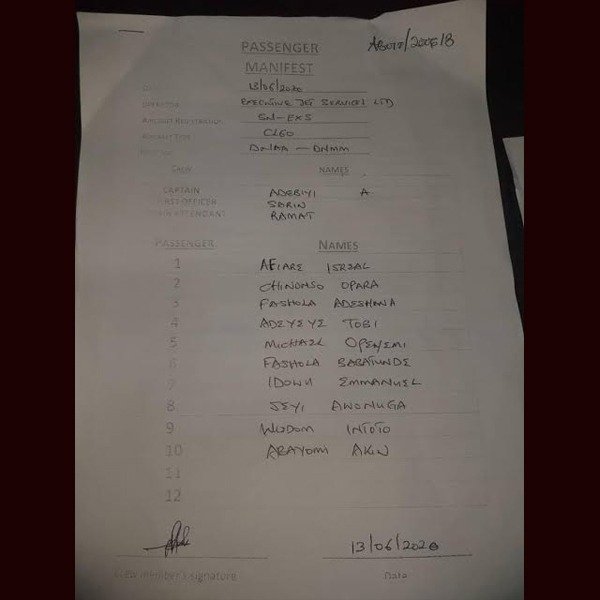 PASSENGER
MANIFEST
13/06/2020
OPERATOR EXECUTIVE JET SERVICES LTD
AIRCRAFT REGISTRATION 5N-EXS
AIRCRAFT TYPE CL60
DNAA — DNMM
CREW NAMES
CAPTAIN ADEBIYI A
FIRST OFFICER SARIN
ATTENDANT RAMAT
PASSENGER NAMES
1 AFIARE ISREAL
2 CHINONSO OPARA
3 FASHOLA ADESHONA
4 ADEYEYE TOBI
5 MICHAEL OPEYEMI
6 FASHOLA BABATUNDE
7 IDOWU EMMANUEL
8 SEYI AWONUGA
9 WISDOM INTOTO
10 ABAYOMI AKIN
11
12
13/06/2020
Crew member's signature Date